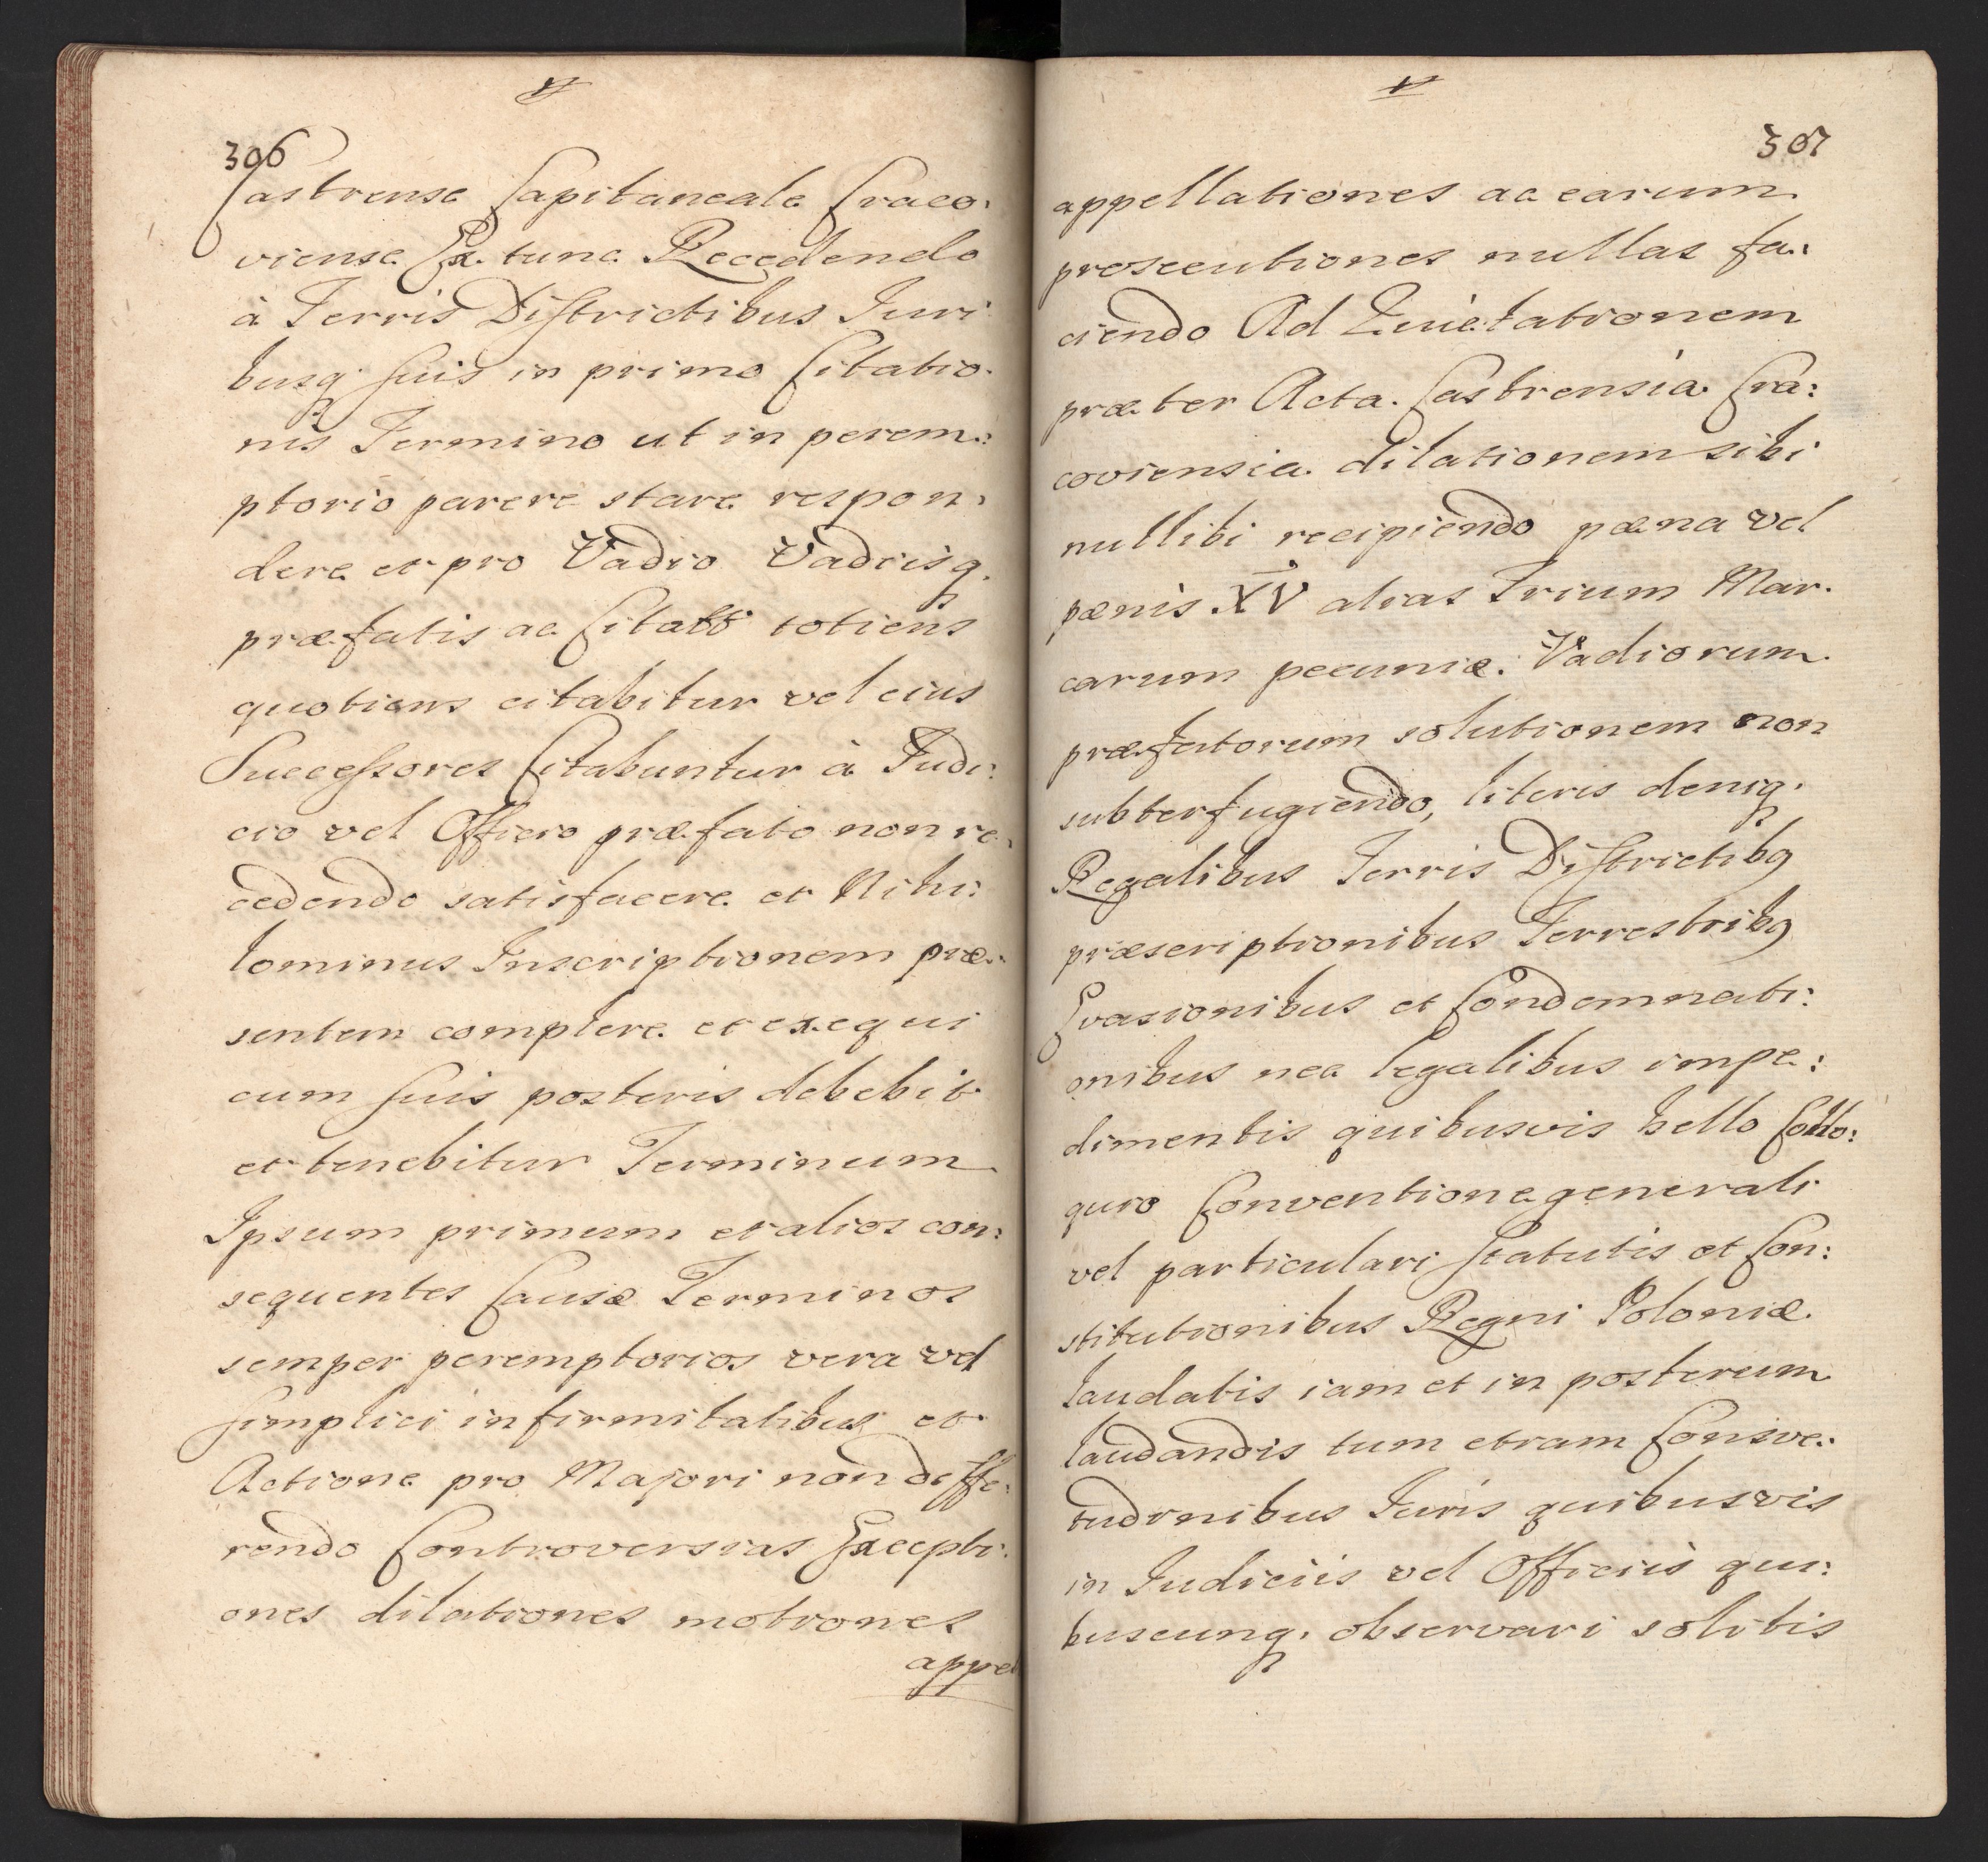 306
Castrense Capitaneale Craco:
viense Ex tunc Recedendo
à Terris Districtibus Juri
busq suis in primo Citatio.
nis Termino ut in perem:
ptorio parere stare respon:
dere et pro Vadio Vadiisq.
præfatis ac Citatus totiens
quotiens citabitur vel eius
Successores Citabuntur à Judi:
cio vel Officio præfato non re:
cedendo satisfacere et Nihi:
lominus Inscriptionem præ:
sentem complere et exequi
cum suis posteris debebit
et tenebitur Terminum
Ipsum primum et alios con:
sequentes Causæ Terminos
semper peremptorios vera vel
simplici infirmitatibus et
Actione pro Majori non diffe:
rendo Controversias Excepti:
ones dilationes motiones
appel
307
appellationes ac earum
prosecutiones nullas fa:
ciendo Ad Quietationem
præter Acta Castrensia Cra:
coviensia dilationem sibi
nullibi recipiendo pæna vel
pænis XIV alias Trium Mar.
carum pecuniæ. Vadiorum
præfatorum solutionem non
subterfugiendo, literis deniq.
Regalibus Terris Districtibq
præscriptionibus Terrestribq
Evasionibus et Condemnati:
onibus nec legalibus impe:
dimentis quibusvis bello Collo:
quio Conventione generali
vel particulari Statutis et Con:
stitutionibus Regni Poloniæ
laudatis iam et in posterum
laudandis tum etiam Consve:
tudinibus Iuris quibusvis
in Iudiciis vel Officiis qui:
buscunq. observari solitis